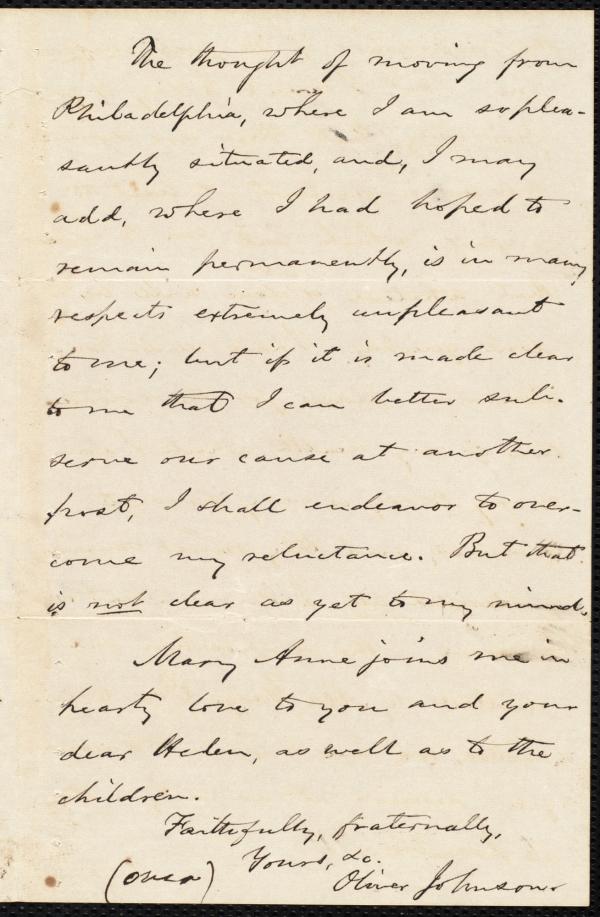 The thought of moving from
Philadelphia, where I am so plea-
santly situated, and, I may
add, where I had hoped to
remain permanently, is in many
respects extremely unpleasant
to me; but if it is made clear
to me that I can better sub-
serve our cause at another
post, I shall endeavor to over-
come my reluctance. But that
is not clear as yet to my mind.
Mary Anne joins me in
hearty love to you and your
dear Helen, as well as to the
children.
Faithfully, fraternally,
Yours, &c.
(over) Oliver Johnson.